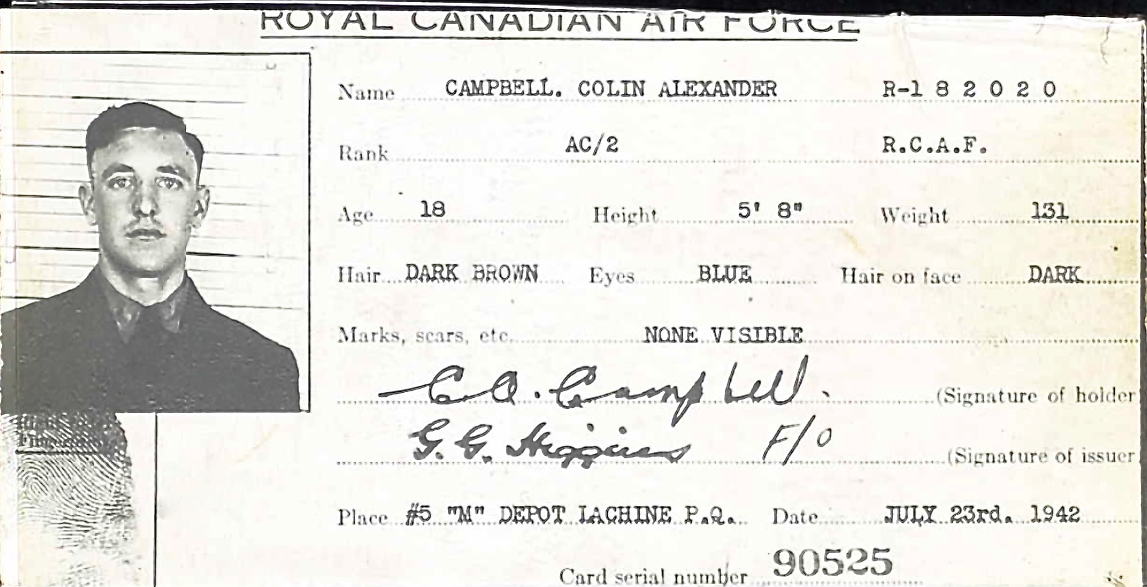 ROYAL CANADIAN AIR FORCE
Name CAMPBELL. COLIN ALEXANDER R-182020
Rank AC/2 R.C.A.F.
Age 18 Height 5' 8" Weight 131
Hair DARK BROWN Eyes BLUE Hair on face DARK
Marks, scars, etc. NONE VISIBLE
C.A. Campbell. (Signature of holder
G.G. Higgins F/O (Signature of issuer
Place #5 "M" DEPOT LACHINE P.Q. Date JULY 23rd. 1942
Card serial number 90525